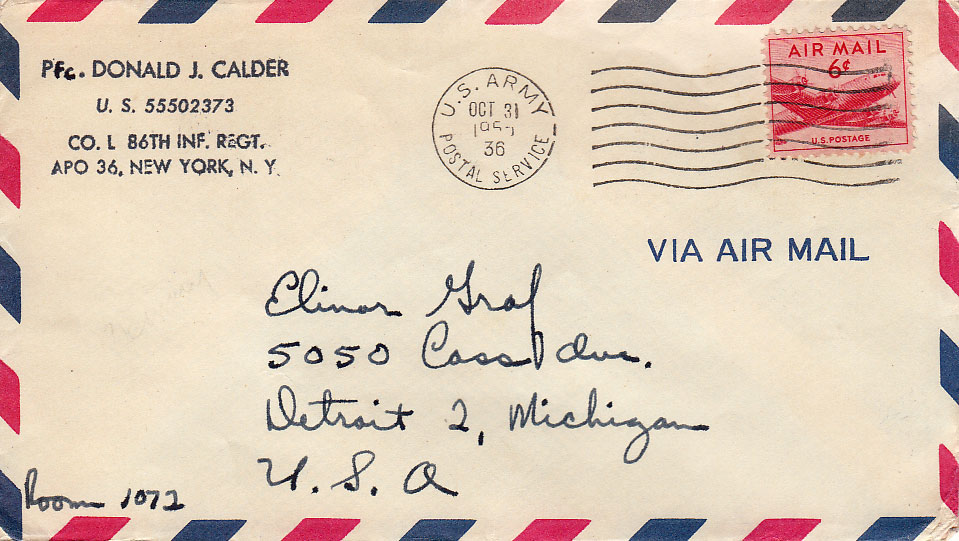 Pfc. DONALD J. CALDER
U. S. 55502373
CO. L 86TH INF. REGT.
APO 36, NEW YORK, N. Y.
U.S. ARMY
OCT 31
36
POSTAL SERVICE
AIR MAIL
6¢
U.S. POSTAGE
VIA AIR MAIL
Elinor Graf
5050 Cass Ave.
Detroit 2, Michigan
U. S. A
Room 1072